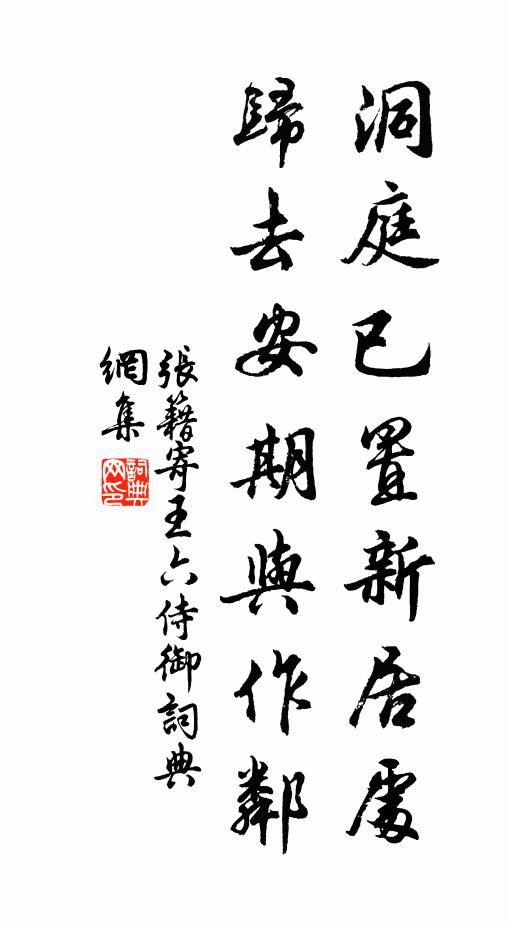 洞庭已置新居處
歸去安期與作鄰
張籍寄王六侍御詞典
網集
詞典網印